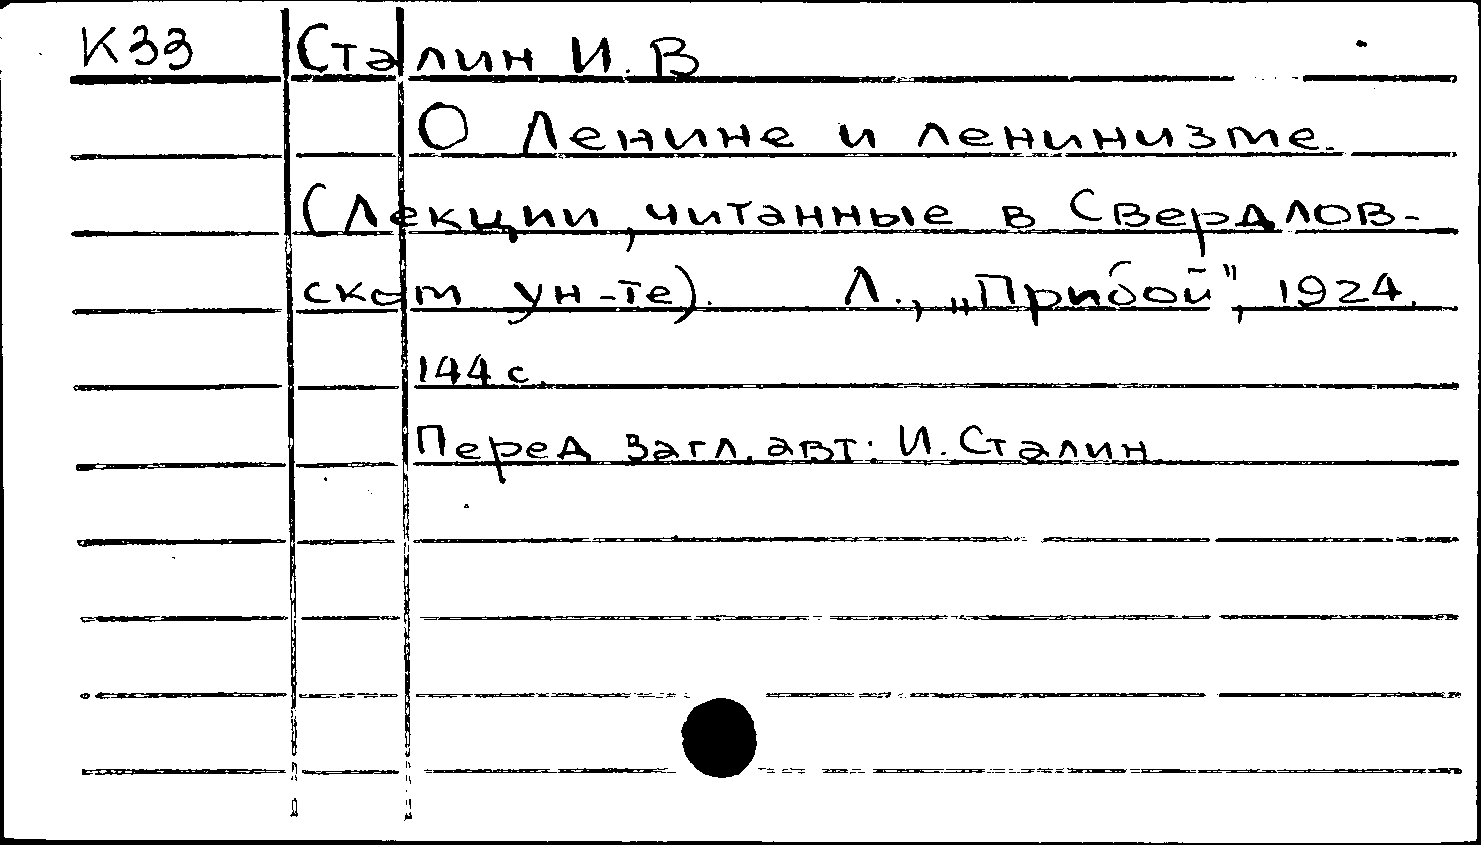 К33 Сталин И. В
О Ленине и ленинизме.
(Лекции, читанные в Свердлов-
ском ун-те). Л., „Прибой", 1924.
144 с.
Перед загл. авт: И. Сталин